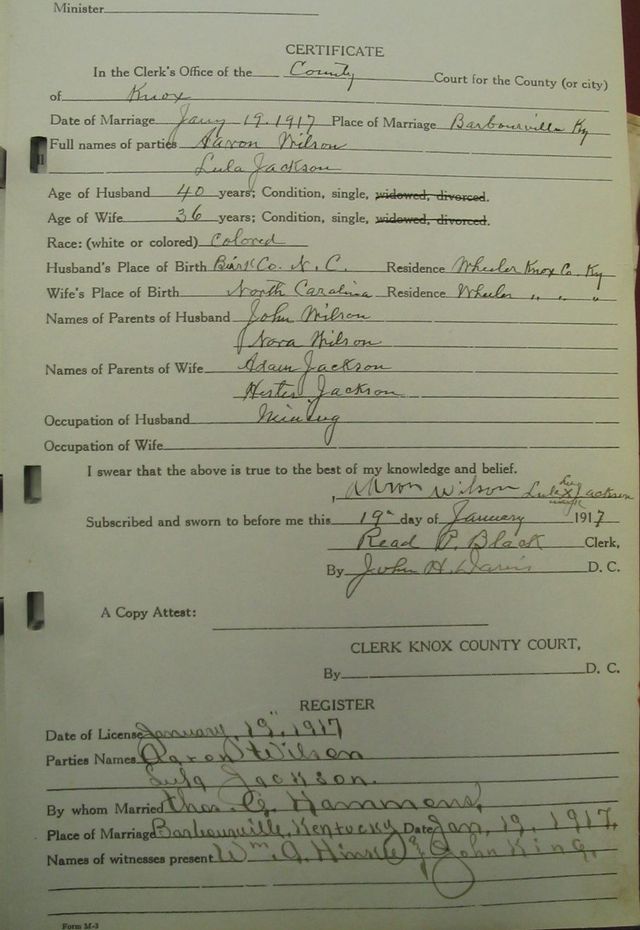 Minister
CERTIFICATE
In the Clerk's Office of the County Court for the County (or city)
of Knox
Date of Marriage Jany 19, 1917 Place of Marriage Barbourville Ky
Full names of parties Aaron Wilson
Lula Jackson
Age of Husband 40 years; Condition, single, widowed, divorced.
Age of Wife 36 years; Condition, single, widowed, divorced.
Race: (white or colored) Colored
Husband's Place of Birth Co. N. C. Residence Wheeler Knox Co. Ky
Wife's Place of Birth North Carolina Residence Wheeler " " "
Names of Parents of Husband John Wilson
Nora Wilson
Names of Parents of Wife Adam Jackson
Hester Jackson
Occupation of Husband Mining
Occupation of Wife
I swear that the above is true to the best of my knowledge and belief.
Aaron Wilson Lula her X mark Jackson
Subscribed and sworn to before me this 19" day of January 1917
Read P. Black Clerk,
By John H. Davis D. C.
A Copy Attest:
CLERK KNOX COUNTY COURT,
By D. C.
REGISTER
Date of License January, 19", 1917
Parties Names Aaron Wilson
Lula Jackson.
By whom Married Thos. G. Hammons,
Place of Marriage Barbourville, Kentucky Date Jan, 19, 1917,
Names of witnesses present Wm. A. Hinkle & John King,
Form M-3